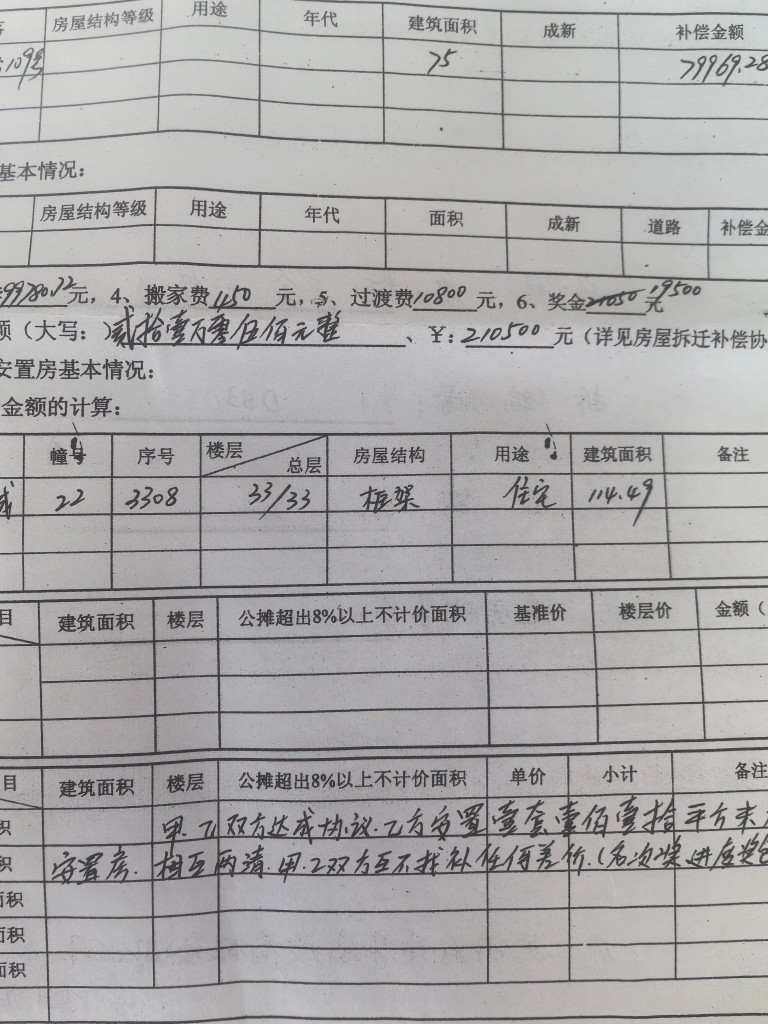 房屋结构等级 用途 年代 建筑面积 成新 补偿金额
109号 75 79969.28
基本情况：
房屋结构等级 用途 年代 面积 成新 道路 补偿金
99780.72元，4、搬家费450元，5、过渡费10800元，6、奖金21050元19500
额（大写：）贰拾壹万零伍佰元整、¥：210500元（详见房屋拆迁补偿协
安置房基本情况：
金额的计算：
幢号 序号 楼层 总层 房屋结构 用途 建筑面积 备注
22 3308 33/33 框架 住宅 114.49
目 建筑面积 楼层 公摊超出8%以上不计价面积 基准价 楼层价 金额（
目 建筑面积 楼层 公摊超出8%以上不计价面积 单价 小计 备注
积 甲.乙双方达成协议.乙方安置壹套壹佰壹拾平方米
积 安置房.相互两清.甲.乙双方互不找补任何差价.(名次奖进度奖
面积
面积
面积